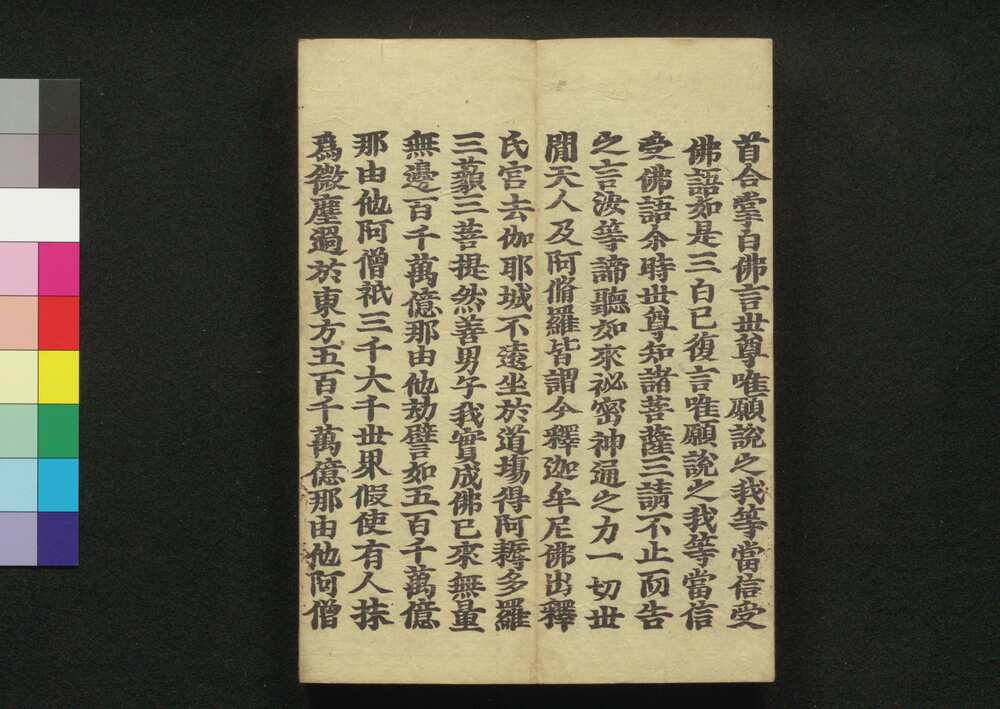 首合掌白佛言世尊唯願說之我等當信受
佛語如是三白已復言唯願說之我等當信
受佛語尒時世尊知諸菩薩三請不止而告
之言汝等諦聽如來祕密神通之力一切世
閒天人及阿脩羅皆謂今釋迦牟尼佛出釋
氏宮去伽耶城不遠坐於道場得阿耨多羅
三藐三菩提然善男子我實成佛已來無量
無邊百千萬億那由他劫譬如五百千萬億
那由他阿僧祇三千大千世界假使有人抹
爲微塵過於東方五百千萬億那由他阿僧